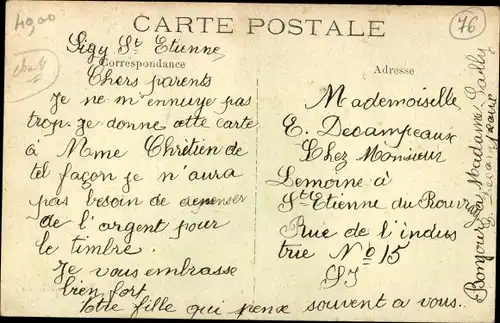 4900
CARTE POSTALE
76
Sigy St. Etienne
Correspondance
Chers parents
Je ne m'ennuye pas
trop. je donne cette carte
à Mme Chrétien de
tel façon je n'aura
pas besoin de depenser
de l'argent pour
le timbre.
Je vous embrasse
bien fort
Votre fille qui pense souvent a vous.
Adresse
Mademoiselle
E. Decampeaux
Chez Monsieur
Lemorne à
St Etienne du Rouvray
Rue de l'indus
trie No 15
SI
Bonjour a Madame Sailly